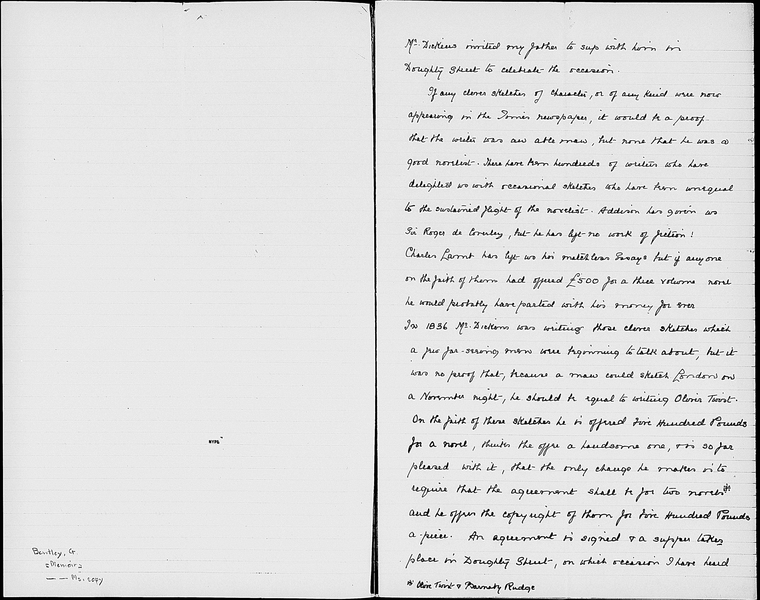 Bentley, G
Memoir
Ms. copy
Mr. Dickens invited my father to sup with him in
Doughty Street to celebrate the occasion.
If any clever sketches of character, or of any kind were now
appearing in the Times newspaper, it would be a proof
that the writer was an able man, but none that he was a
good novelist. There have been hundreds of writers who have
delighted us with occasional sketches who have been unequal
to the sustained flight of the novelist. Addison has given us
Sir Roger de Coverley, but he has left no work of fiction!
Charles Lamb has left us his matchless Essays but if any one
on the faith of them had offered £500 for a three volume novel
he would probably have parted with his money for ever
In 1836 Mr. Dickens was writing those clever sketches which
a few far-seeing men were beginning to talk about, but it
was no proof that, because a man could sketch London on
a November night, he should be equal to writing Oliver Twist.
On the faith of these sketches he is offered Five Hundred Pounds
for a novel, thinks the offer a handsome one, & is so far
pleased with it, that the only change he makes is to
require that the agreement shall be for two novels*
and he offers the copyright of them for Five Hundred Pounds
a-piece. An agreement is signed & a supper takes
place in Doughty Street, on which occasion I have heard
* Oliver Twist & Barnaby Rudge